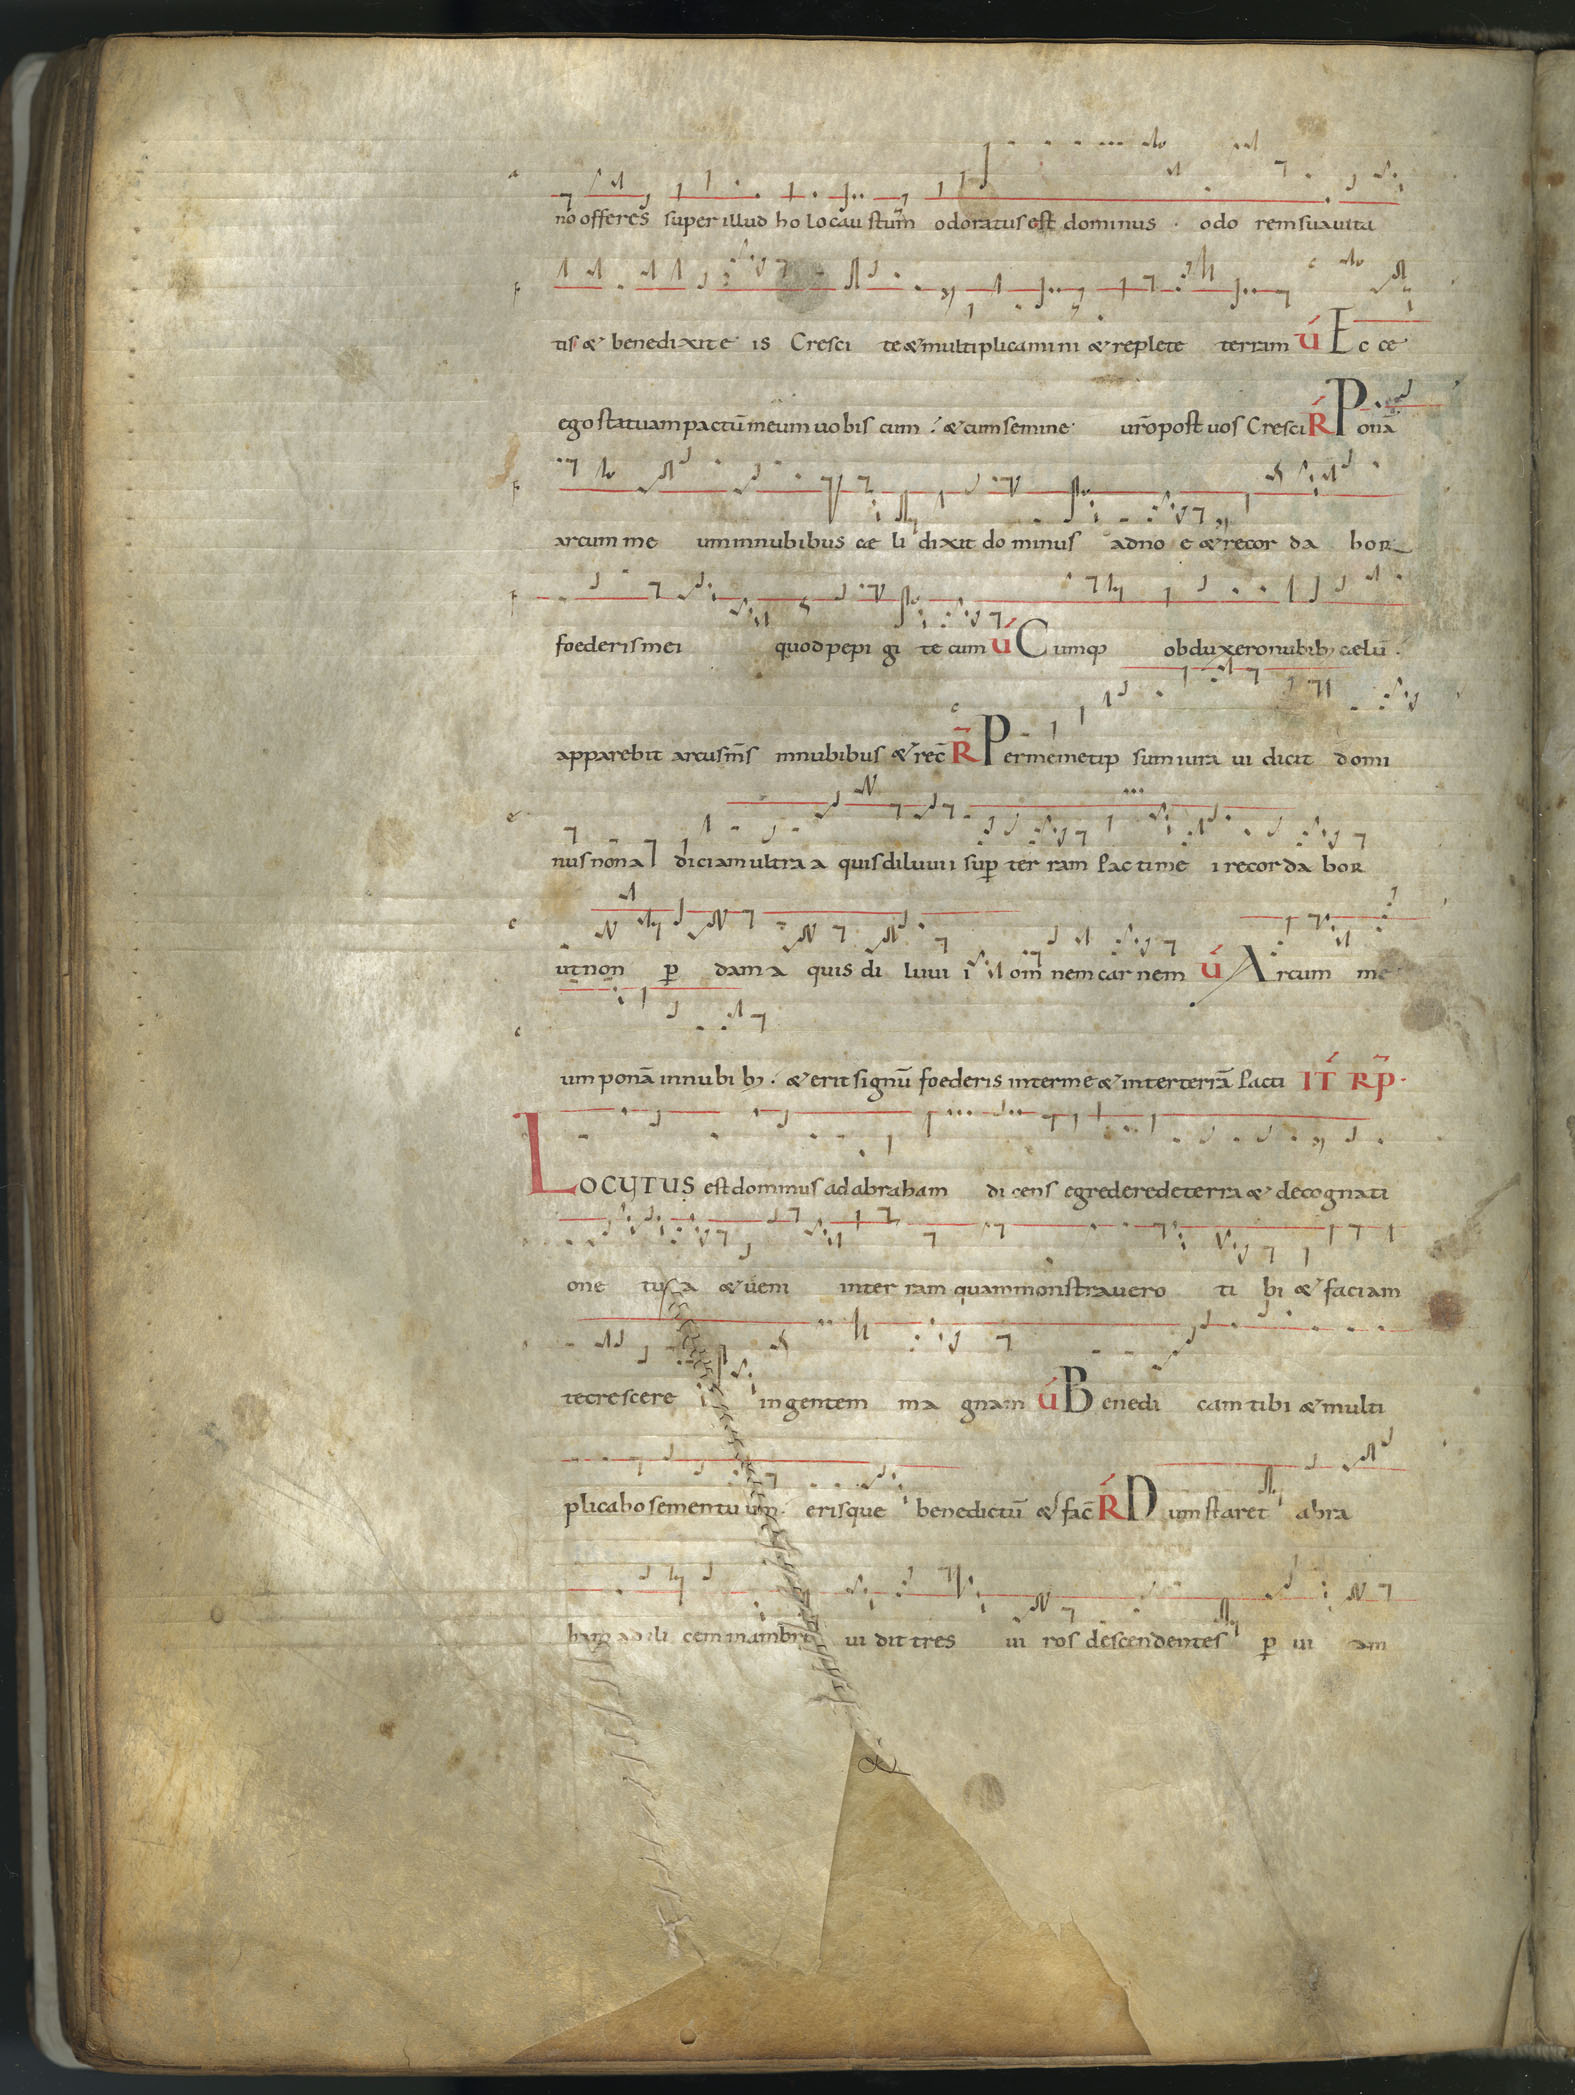 no offeres super illud ho locau stum̄ odoratus est dominus · odo rem suauita
tis & benedixit e is Cresci te & multiplicamini & replete terram V́ Ec ce
ego statuam pactū meum uobis cum : & cum semine ur̄o post uos Cresci R̄ Ponā
arcum me um innubibus cae li dixit do minus ad no e & recor da bor
foederis mei quod pepi gi te cum V́ Cumq obduxero nubib; caelū .
apparebit arcus m̄s innubibus & rec̄ R̄ Per memetip sum iura ui dicit domi
nus non a diciam ultra a quis diluuii sup ter ram Pacti me i recor da bor
ut non p dam a quis di luui i om nem car nem V́ Arcum me
um ponā innubi b; . & erit signū foederis inter me & inter terrā Pacti IT̄ R̄P̄·
LOCUTUS est dominus ad abraham di cens egredere de terra & de cognati
one tu a & ueni inter ram quam monstrauero ti bi & faciam
te crescere i in gentem ma gnam V́ Benedi cam tibi & multi
plicabo semen tu um . erisque benedictū & fac̄ R̄ Dum staret abra
ham ad ili cem mambre ui dit tres ui ros descendentes p ui am